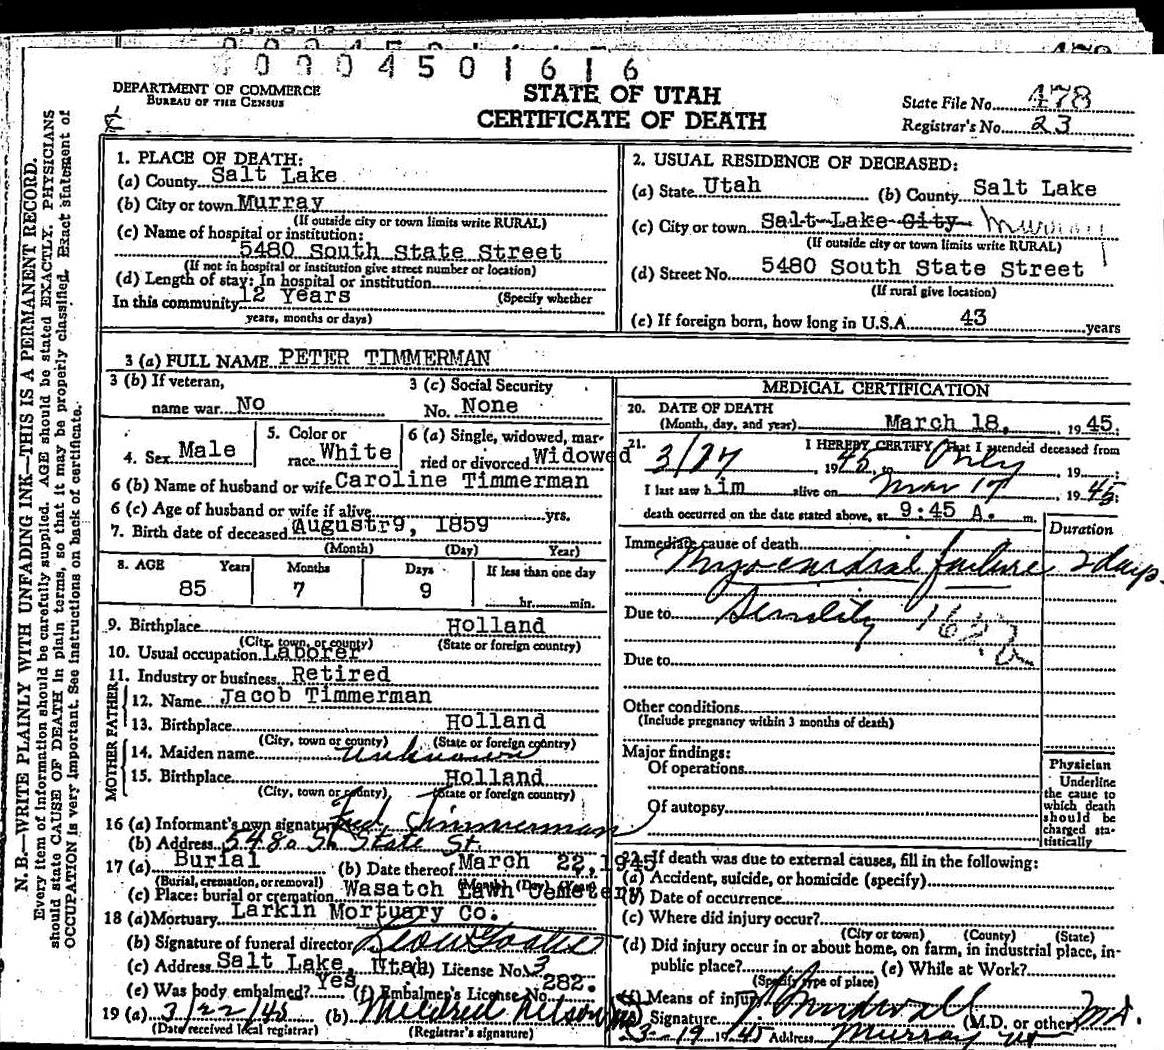 0 0 0 4 5 0 1 6 1 6
DEPARTMENT OF COMMERCE
BUREAU OF THE CENSUS
STATE OF UTAH
CERTIFICATE OF DEATH
State File No. 478
Registrar's No. 23
N. B.—WRITE PLAINLY WITH UNFADING INK—THIS IS A PERMANENT RECORD.
Every item of information should be carefully supplied. AGE should be stated EXACTLY. PHYSICIANS
should state CAUSE OF DEATH in plain terms, so that it may be properly classified. Exact statement of
OCCUPATION is very important. See instructions on back of certificate.
1. PLACE OF DEATH:
(a) County Salt Lake
(b) City or town Murray
(If outside city or town limits write RURAL)
(c) Name of hospital or institution:
5480 South State Street
(If not in hospital or institution give street number or location)
(d) Length of stay: In hospital or institution
In this community 12 Years (Specify whether
years, months or days)
2. USUAL RESIDENCE OF DECEASED:
(a) State Utah (b) County Salt Lake
(c) City or town Salt Lake City Murray
(If outside city or town limits write RURAL)
(d) Street No. 5480 South State Street
(If rural give location)
(e) If foreign born, how long in U.S.A. 43 years
3 (a) FULL NAME PETER TIMMERMAN
3 (b) If veteran,
name war No
3 (c) Social Security
No. None
4. Sex Male
5. Color or
race White
6 (a) Single, widowed, mar-
ried or divorced Widowed
6 (b) Name of husband or wife Caroline Timmerman
6 (c) Age of husband or wife if alive yrs.
7. Birth date of deceased August 9, 1859
(Month) (Day) Year)
8. AGE Years Months Days If less than one day
85 7 9 hr. min.
9. Birthplace Holland
(City, town, or county) (State or foreign country)
10. Usual occupation Laborer
11. Industry or business Retired
FATHER
12. Name Jacob Timmerman
13. Birthplace Holland
(City, town or county) (State or foreign country)
MOTHER
14. Maiden name unknown
15. Birthplace Holland
(City, town or county) (State or foreign country)
16 (a) Informant's own signature Fred Timmerman
(b) Address 5480 So State St.
17 (a) Burial (b) Date thereof March 22, 1945
(Burial, cremation, or removal) (Month) (Day) (Year)
(c) Place: burial or cremation Wasatch Lawn Cemetery
18 (a) Mortuary Larkin Mortuary Co.
(b) Signature of funeral director
(c) Address Salt Lake, Utah (d) License No. 3
(e) Was body embalmed? Yes (f) Embalmer's License No. 282.
19 (a) 3/22/45 (b) Mildred Nelson
(Date received local registrar) (Registrar's signature)
MEDICAL CERTIFICATION
20. DATE OF DEATH
(Month, day, and year) March 18, 1945.
21. I HEREBY CERTIFY That I attended deceased from
3/17 1945, to Only 19
I last saw him alive on Mar 17 1945
death occurred on the date stated above, at 9:45 A. m.
Duration
Immediate cause of death
Myocardial failure 2 days
Due to Senility 162
Due to
Other conditions
(Include pregnancy within 3 months of death)
Major findings:
Of operations
Of autopsy
Physician
Underline
the cause to
which death
should be
charged sta-
tistically
22. If death was due to external causes, fill in the following:
(a) Accident, suicide, or homicide (specify)
(b) Date of occurrence
(c) Where did injury occur?
(City or town) (County) (State)
(d) Did injury occur in or about home, on farm, in industrial place, in-
public place? (e) While at Work?
(Specify type of place)
(f) Means of injury
Signature (M.D. or other) M.D.
3-19 1945 Address Murray Ut